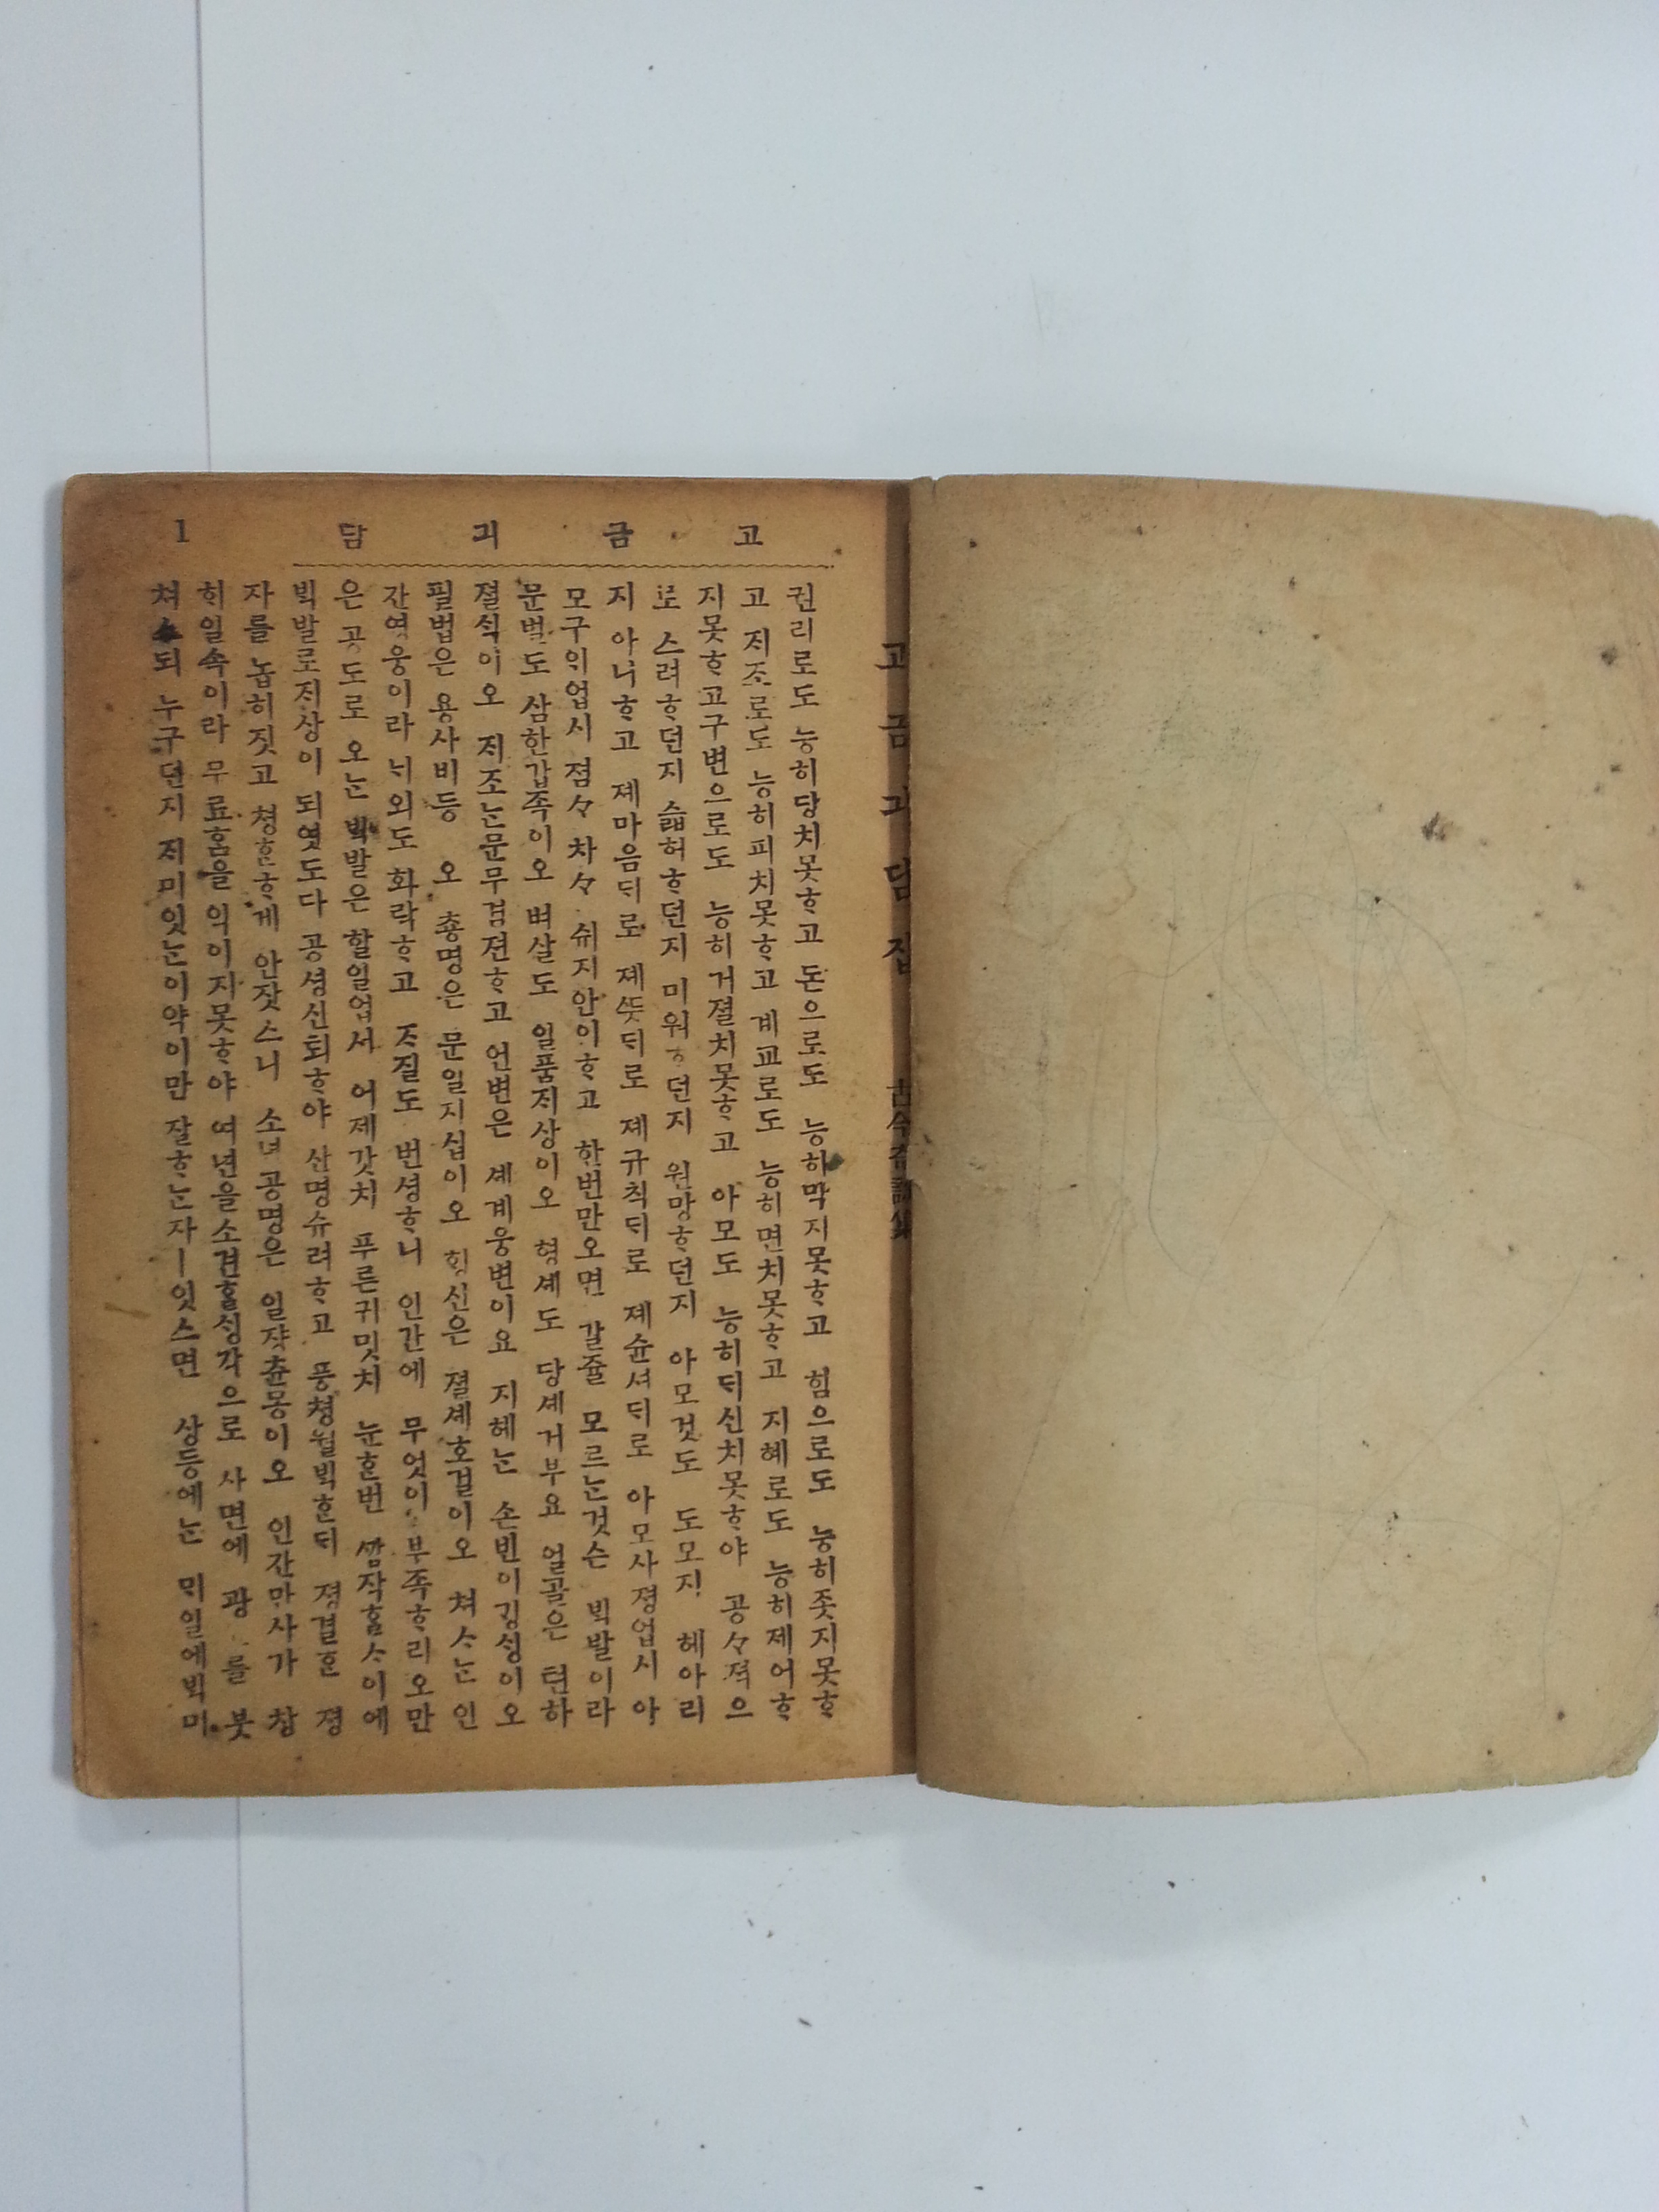 고금긔담 1
고금긔담집 古今奇談集
권리로도 능히당치못ᄒᆞ고 돈으로도 능히막지못ᄒᆞ고 힘으로도 능히좃지못ᄒᆞ
고 ᄌᆡ조로도 능히피치못ᄒᆞ고 계교로도 능히면치못ᄒᆞ고 지혜로도 능히제어ᄒᆞ
지못ᄒᆞ고구변으로도 능히거졀치못ᄒᆞ고 아모도 능히ᄃᆡ신치못ᄒᆞ야 공々젹으
로 스려ᄒᆞ던지 슯허ᄒᆞ던지 미워ᄒᆞ던지 원망ᄒᆞ던지 아모것도 도모지 헤아리
지 아니ᄒᆞ고 졔마음ᄃᆡ로 졔ᄯᅳᆺᄃᆡ로 졔규칙ᄃᆡ로 졔슌셔ᄃᆡ로 아모사졍업시 아
모구ᄋᆡ업시 졈々 차々 쉬지안이ᄒᆞ고 한번만오면 갈쥴 모르ᄂᆞᆫ것슨 ᄇᆡᆨ발이라
문벌도 삼한갑족이오 벼살도 일품ᄌᆡ상이오 형셰도 당셰거부요 얼골은 텬하
졀ᄉᆡᆨ이오 ᄌᆡ조ᄂᆞᆫ문무겸젼ᄒᆞ고 언변은 셰계웅변이요 지혜ᄂᆞᆫ 손빈이ᄀᆡᆼᄉᆡᆼ이오
필법은 용사비등 오 춍명은 문일지십이오 ᄒᆡᆼ신은 졀셰호걸이오 쳐ᄉᆞᄂᆞᆫ 인
간영웅이라 ᄂᆡ외도 화락ᄒᆞ고 ᄌᆞ질도 번셩ᄒᆞ니 인간에 무엇이 부족ᄒᆞ리오만
은 공도로 오ᄂᆞᆫ ᄇᆡᆨ발은 할일업셔 어제갓치 푸른귀밋치 눈ᄒᆞᆫ번 ᄭᅡᆷ작ᄒᆞᆯᄉᆞ이에
ᄇᆡᆨ발로ᄌᆡ상이 되엿도다 공셩신퇴ᄒᆞ야 산명슈려ᄒᆞ고 풍쳥월ᄇᆡᆨᄒᆞᆫᄃᆡ 졍결ᄒᆞᆫ 졍
자를 놉히짓고 쳥ᄒᆞᆫᄒᆞ게 안잣스니 소년공명은 일쟝츈몽이오 인간만사가 창
ᄒᆡ일속이라 무료홈을 익이지못ᄒᆞ야 여년을소견ᄒᆞᆯᄉᆡᆼ각으로 사면에 광 를 붓
쳐스되 누구던지 ᄌᆡ미잇ᄂᆞᆫ이약이만 잘ᄒᆞᄂᆞᆫ자ㅣ잇스면 상등에ᄂᆞᆫ ᄆᆡ일에ᄇᆡᆨ미